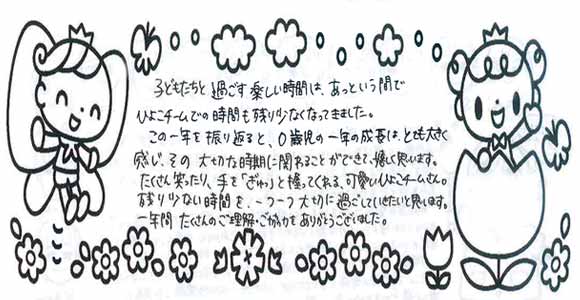 子どもたちと過ごす楽しい時間は、あっという間で
ひよこチームでの時間も残り少なくなってきました。
この一年を振り返ると、0歳児の一年の成長は、とても大きく
感じ、その大切な時期に関わることができて、嬉しく思います。
たくさん笑ったり、手を「ぎゅっ」と握ってくれる、可愛いひよこチームさん。
残り少ない時間を、一つ一つ大切に過ごしていきたいと思います。
一年間たくさんのご理解・ご協力をありがとうございました。